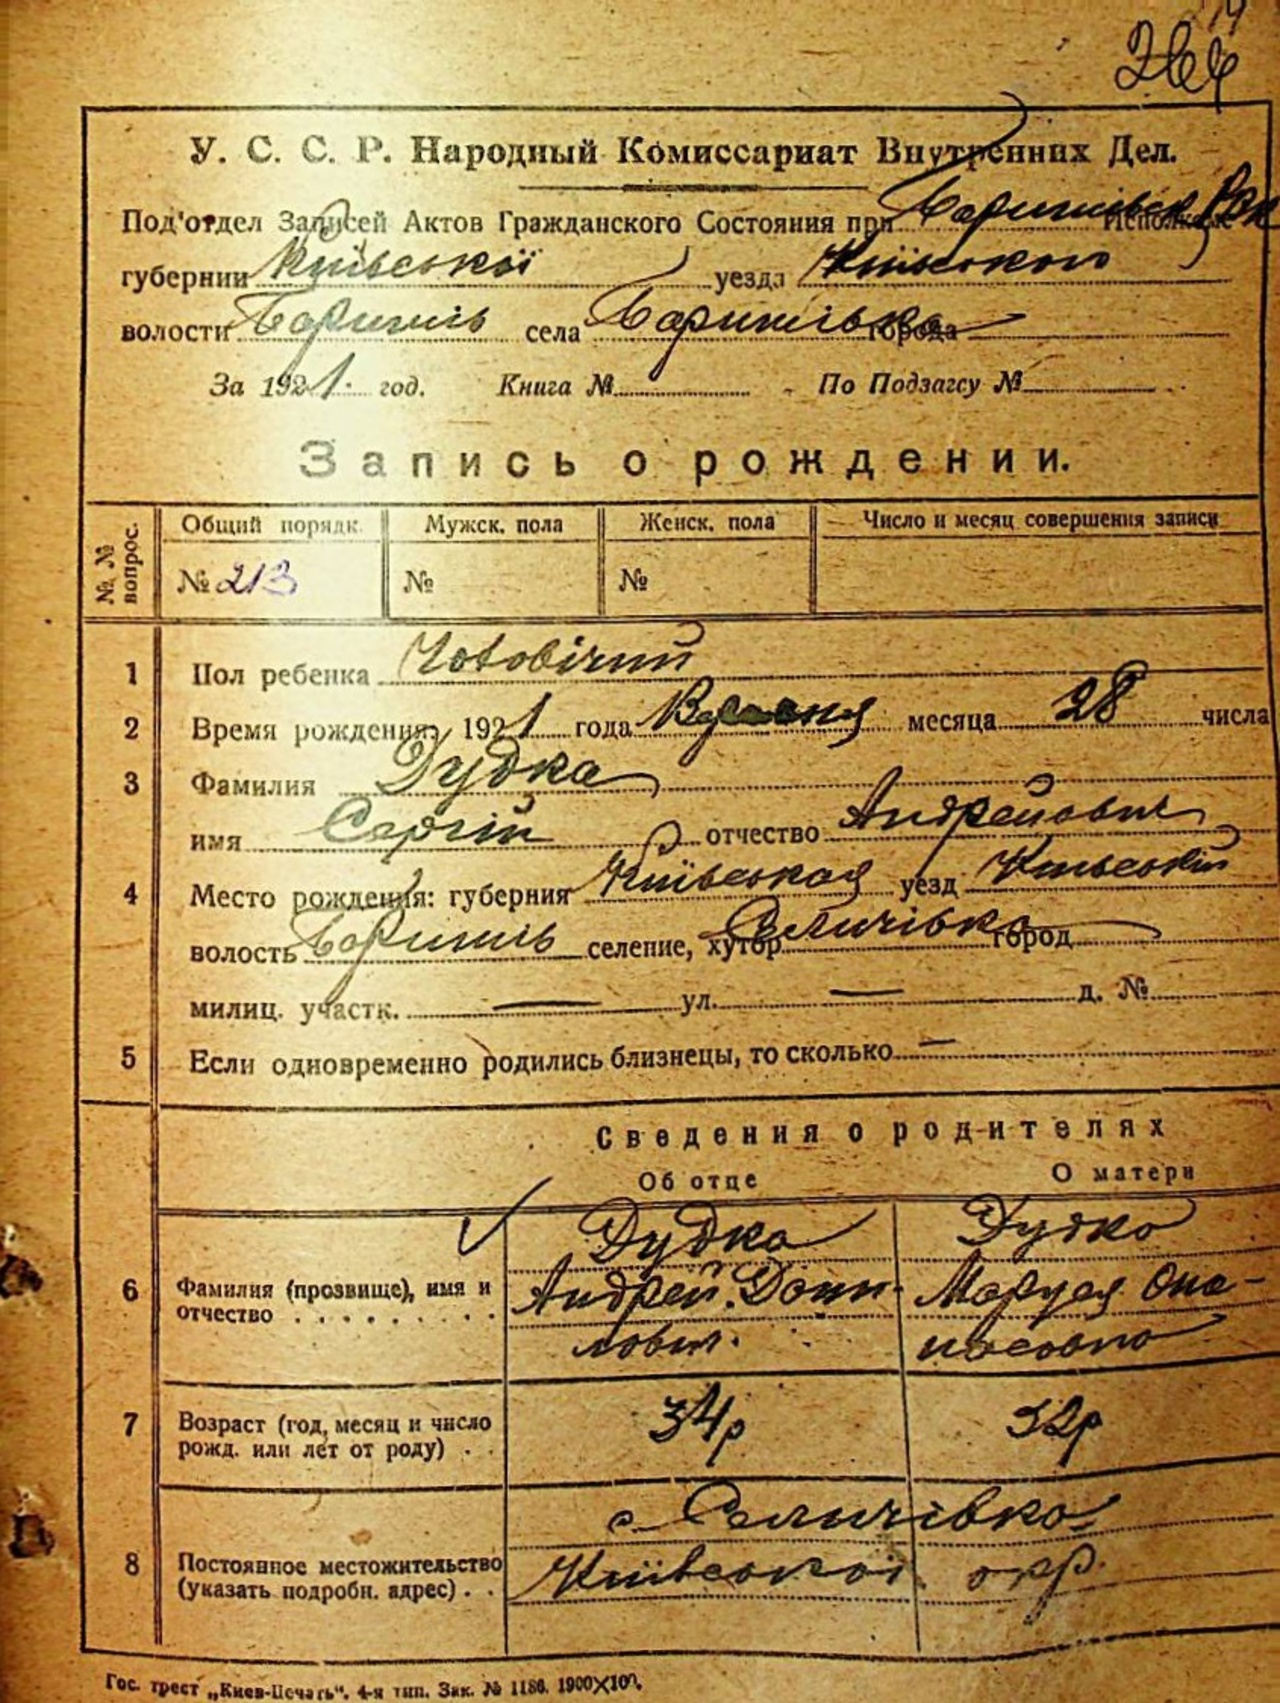 264
У. С. С. Р. Народный Комиссариат Внутренних Дел.
Под'отдел Записей Актов Гражданского Состояния при Исполкоме
губернии Київської уезда Київського
волости Баришіль села Баришівка города
За 1921. год. Книга № По Подзагсу №
Запись о рождении.
№ № вопрос.
Общий порядк. Мужск. пола Женск. пола Число и месяц совершения записи
№ 213 № №
1 Пол ребенка Чоловічий
2 Время рождения: 1921 года месяца 28 числа
3 Фамилия Дудка
имя Сергій отчество Андрейович
4 Место рождения: губерния Київськая уезд Київський
волость Баришіль селение, хутор Селичівка город
милиц. участк. — ул. — д. №
5 Если одновременно родились близнецы, то сколько —
Сведения о родителях
Об отце О матери
Дудка Дудко
6 Фамилия (прозвище), имя и Андрей Дани- Маруся Опа-
отчество лович. насовна
7 Возраст (год, месяц и число 34р 32р
рожд. или лет от роду)
с. Селичівка
8 Постоянное местожительство Київської окр.
(указать подробн. адрес)
Гос. трест „Киев-Печать“. 4-я тип. Зак. № 1186. 1900×100.